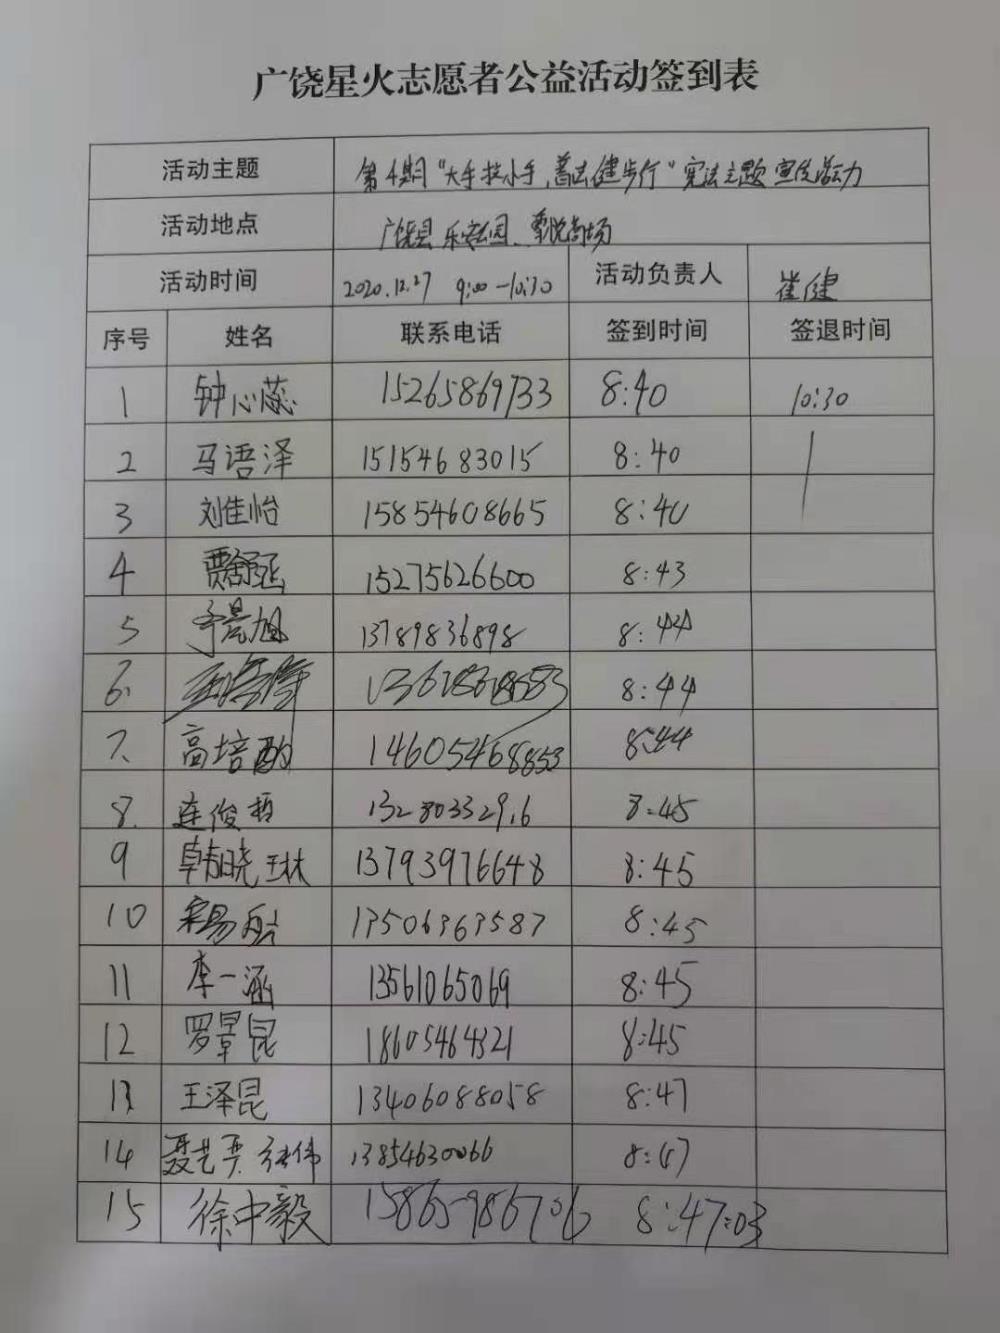 广饶星火志愿者公益活动签到表
活动主题 第4期"大手拉小手,普法健步行"宪法主题宣传活动
活动地点 广饶县乐安公园、乘悦商场
活动时间 2020.12.27 9:00-10:30 活动负责人 崔健
序号 姓名 联系电话 签到时间 签退时间
1 钟心蕊 15265869733 8:40 10:30
2 马语泽 15154683015 8:40
3 刘佳怡 15854608665 8:40
4 贾舒涵 15275626600 8:43
5 晨旭 13789836898 8:44
6. 8:44
7. 高培 14605468853 8:44
8. 连俊哲 132803329.6 8:45
9 韩晓琳 13793976648 8:45
10 宋易航 13506363587 8:45
11 李一涵 13561065069 8:45
12 罗昆 18605464321 8:45
13 王泽昆 13406088058 8:47
14 聂艺 伟 13854630066 8:47
15 徐中毅 15865986706 8:47:03